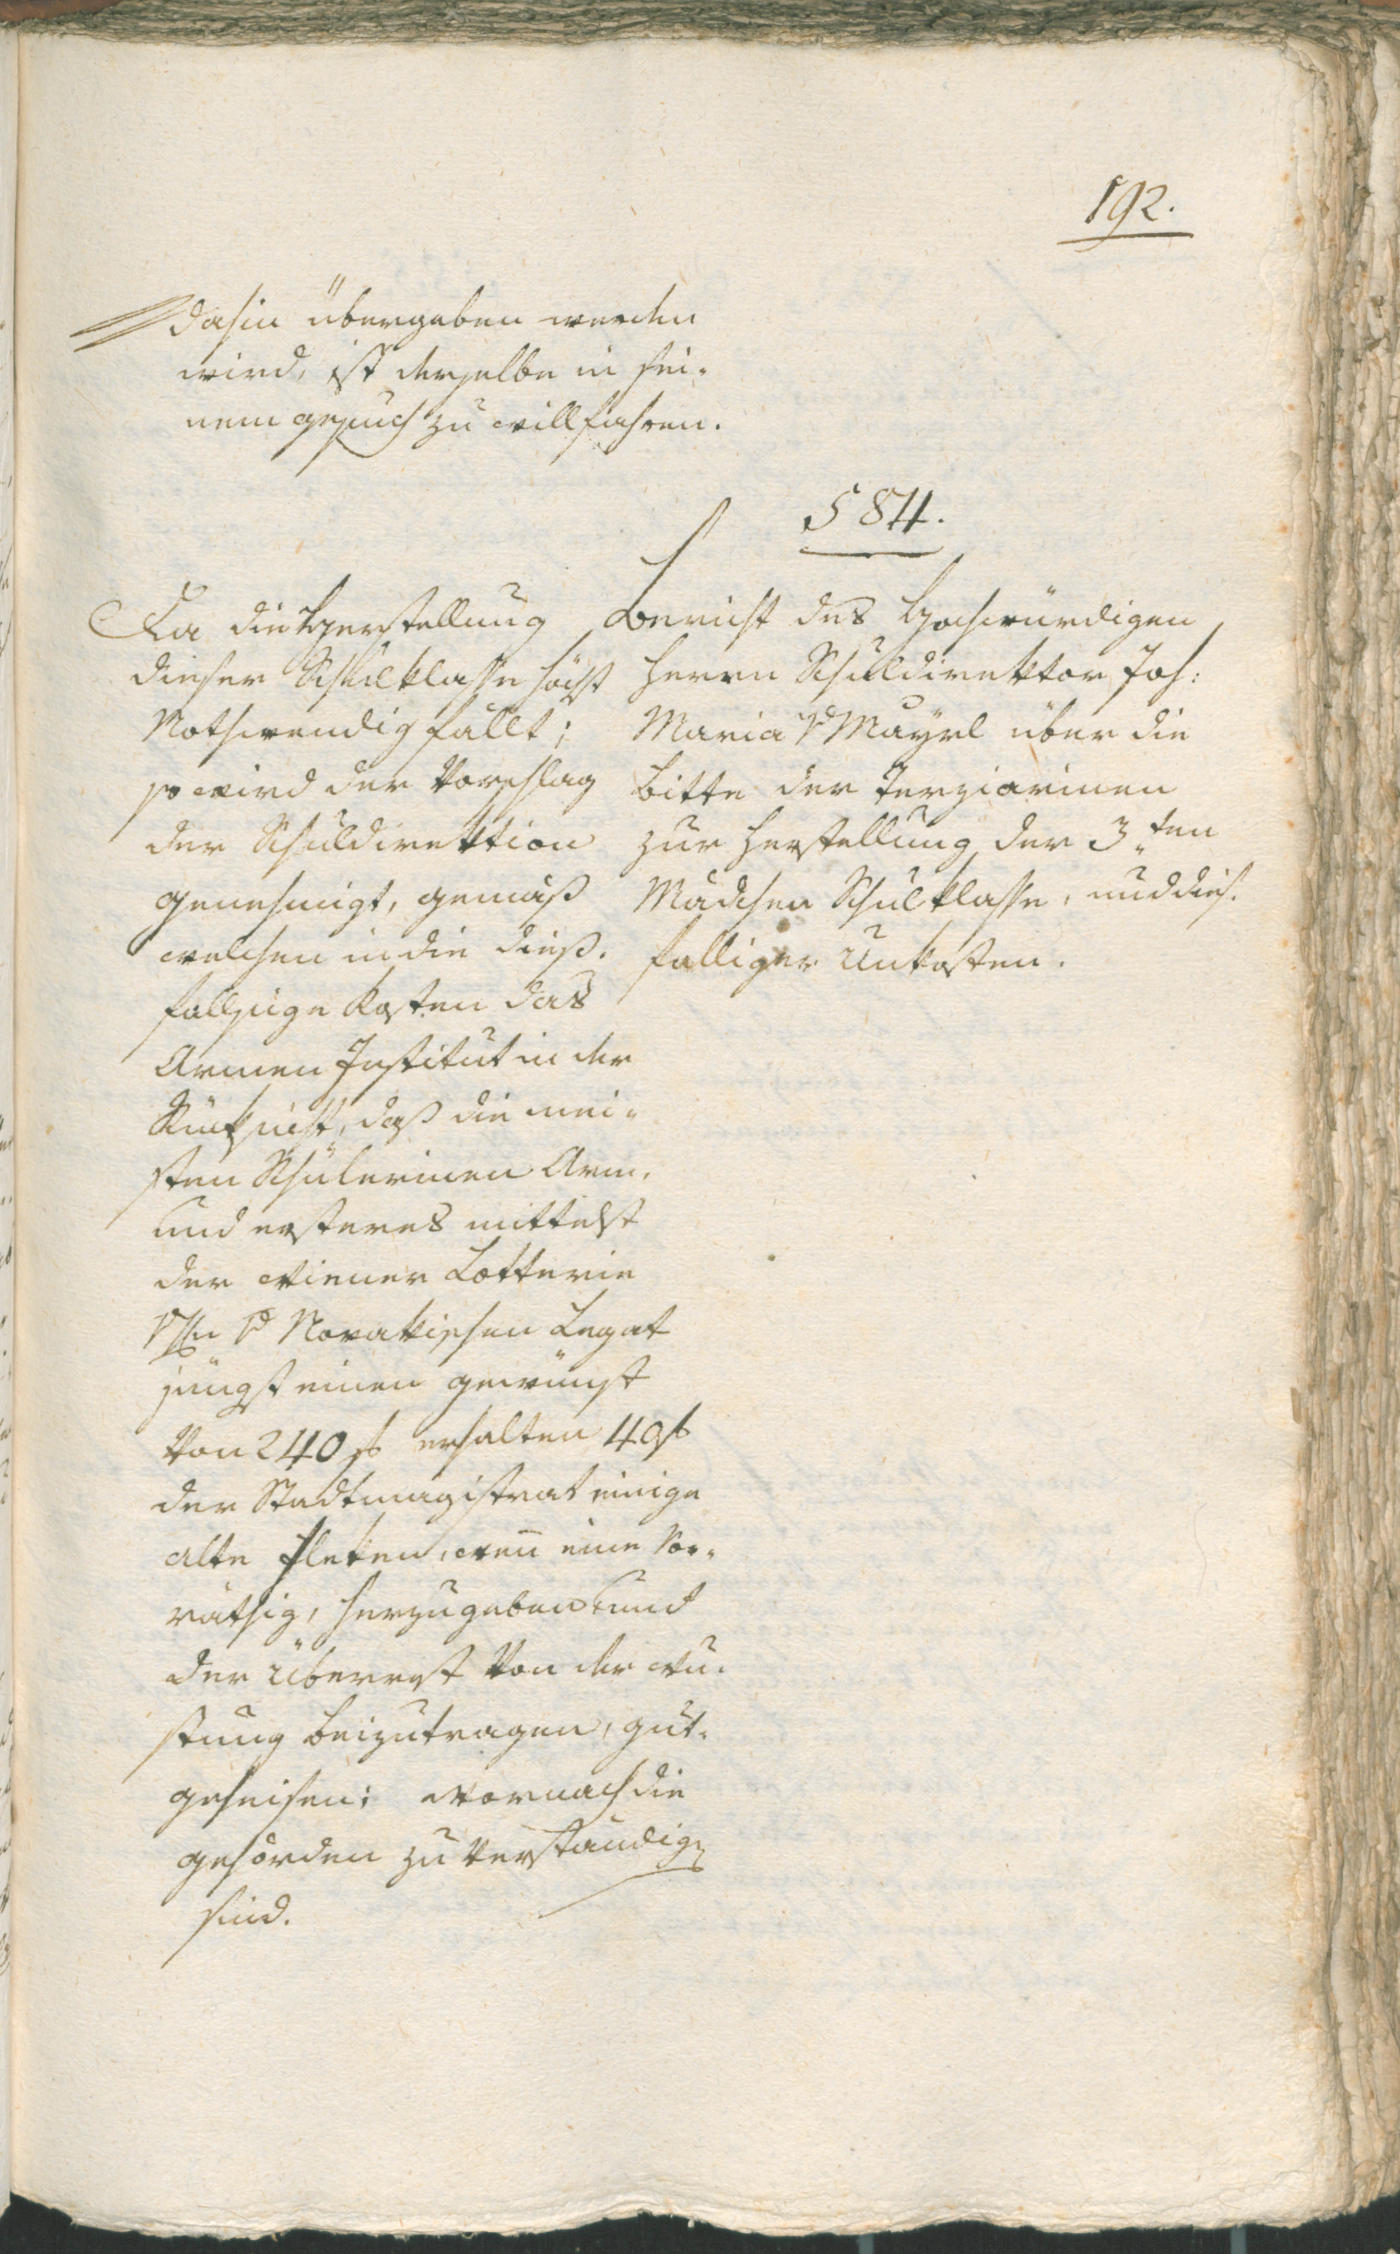 192.
dahin übergeben werden
wird, ist derselbe in sei-
nem gesuch zu willfahren.
584.
Da die Herstellung
dieser Schulklasse höchst
Nothwendig fällt;
so wird der Vorschlag
der Schuldirektion
genehmigt, gemäß
welchen in die dieß-
fallsige Kosten das
Armen Institut in der
Rüksicht, daß die mei-
sten Schülerinen Arm,
und ersteres mittelst
der Wiener Lotterie
v Novakischen Legat
jüngst einen gewinnst
Von 240 f erhalten 40 f
der Stadtmagistrat einige
alte fleken, wen̄ eine Vor-
räthig, herzugeben und
der Überrest Von der
stung beizutragen, gut-
geheisen; wornach die
gehörden zu verständig
sind.
Bericht des Hochwürdigen
Herrn Schuldirektor Joh:
Maria v Mayrl über die
Bitte der Terziarinen
zur Herstellung der 3ten
Mädchen Schulklasse, und dies-
falliger Unkosten.